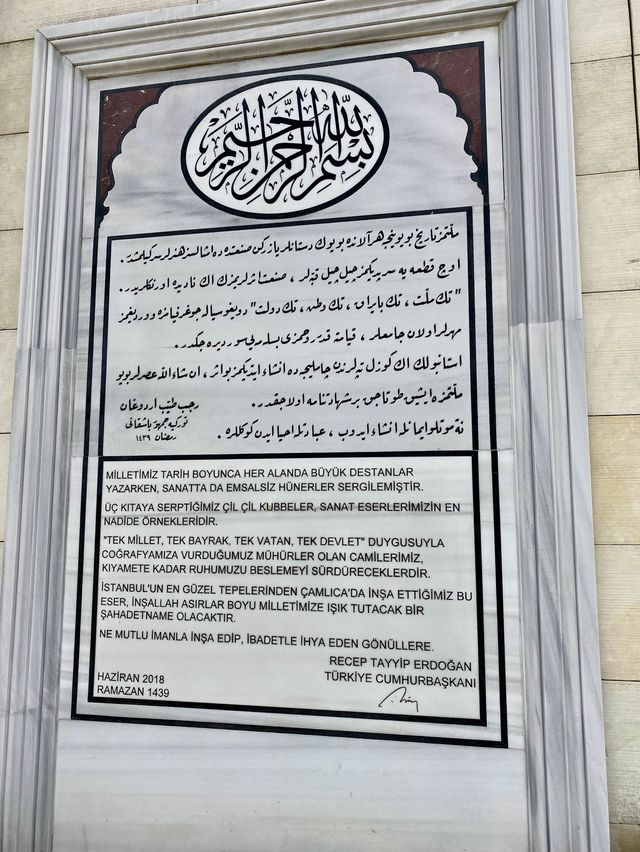 بسم الله الرحمن الرحيم
ملّتمز تاريخ بويونجه هر آلانده بويوك دستانلر يازركن صنعتده ده امثالسز هنرلر سركيله‌مشدر .
اوچ قطعه يه سرپديكمز چيل چيل قبّه‌لر ، صنعت اثرلريمزك اك ناديده اورنكلريدر .
"تك ملّت ، تك بايراق ، تك وطن ، تك دولت" دويغوسيله جوغرافيامزه ووردیغمز
مهرلر اولان جامعلر ، قيامته قدر روحمزى بسله‌مه‌يى سورديره‌جكدر .
استانبولك اك كوزل تپه‌لرندن چامليجه‌ده انشاء ايتديكمز بو اثر ، ان شاء الله عصرلر بويو
ملّتمزه ايشيق طوتاجق بر شهادتنامه اولاجقدر .
نه موتلو ايمانله انشاء ايدوب ، عبادتله احيا ايدن كوكللره .
رجب طيّب اردوغان
توركيه جمهورباشقانى
رمضان ١٤٣٩
MİLLETİMİZ TARİH BOYUNCA HER ALANDA BÜYÜK DESTANLAR
YAZARKEN, SANATTA DA EMSALSİZ HÜNERLER SERGİLEMİŞTİR.
ÜÇ KITAYA SERPTİĞİMİZ ÇİL ÇİL KUBBELER, SANAT ESERLERİMİZİN EN
NADİDE ÖRNEKLERİDİR.
"TEK MİLLET, TEK BAYRAK, TEK VATAN, TEK DEVLET" DUYGUSUYLA
COĞRAFYAMIZA VURDUĞUMUZ MÜHÜRLER OLAN CAMİLERİMİZ,
KIYAMETE KADAR RUHUMUZU BESLEMEYİ SÜRDÜRECEKLERDİR.
İSTANBUL'UN EN GÜZEL TEPELERİNDEN ÇAMLICA'DA İNŞA ETTİĞİMİZ BU
ESER, İNŞALLAH ASIRLAR BOYU MİLLETİMİZE IŞIK TUTACAK BİR
ŞAHADETNAME OLACAKTIR.
NE MUTLU İMANLA İNŞA EDİP, İBADETLE İHYA EDEN GÖNÜLLERE.
RECEP TAYYİP ERDOĞAN
TÜRKİYE CUMHURBAŞKANI
HAZİRAN 2018
RAMAZAN 1439